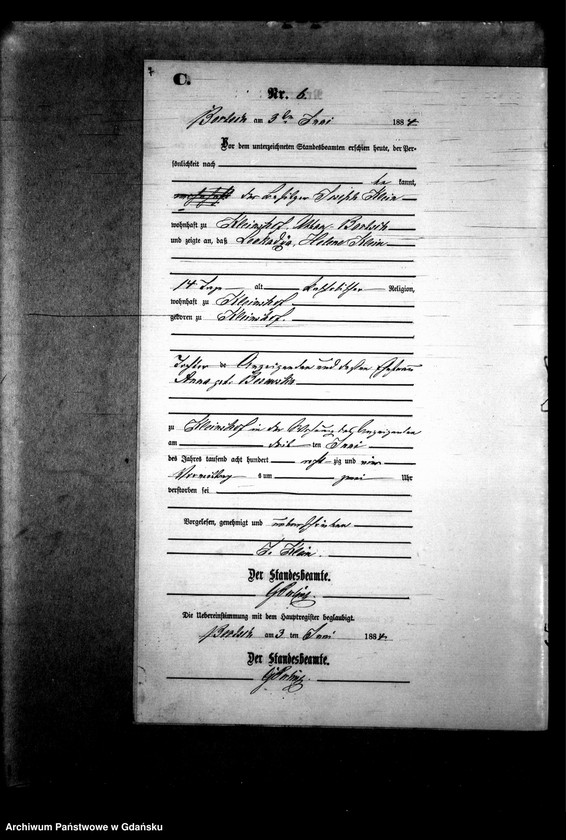 7
C.
Nr. 6.
am 3ten Juni 1884.
Vor dem unterzeichneten Standesbeamten erschien heute, der Per-
sönlichkeit nach
be kannt,
der Besitzer Joseph Klein
wohnhaft zu Kleinshof
und zeigte an, daß Leokadja Helene Klein
14 Tage alt katholischer Religion,
wohnhaft zu Kleinshof
geboren zu Kleinshof.
Tochter des Anzeigenden und dessen Ehefrau
Anna geb.
zu Kleinshof in der Wohnung des Anzeigenden
am drei ten Juni
des Jahres tausend acht hundert acht zig und vier
Vormittag s um zwei Uhr
verstorben sei
Vorgelesen, genehmigt und unterschrieben
J. Klein.
Der Standesbeamte.
Die Uebereinstimmung mit dem Hauptregister beglaubigt.
am 3 ten Juni 1884.
Der Standesbeamte.
Archiwum Państwowe w Gdańsku